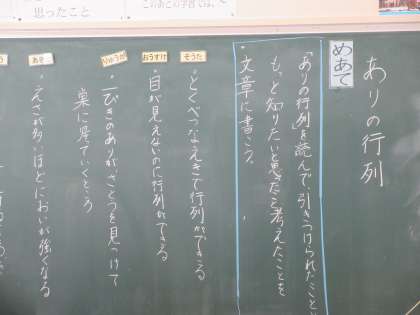 ありの行列
めあて
「ありの行列」を読んで、引きつけられたことや
もっと知りたいと思ったこと、考えたことを
文章に書こう。
そうた
・とくべつなえきで行列ができる
おうすけ
・目が見えないのに行列ができる
りゅうが
・一ぴきのありがさとうを見つけて
巣に帰っていくところ
あき
・えさが多いほどにおいが強くなる
思ったこと